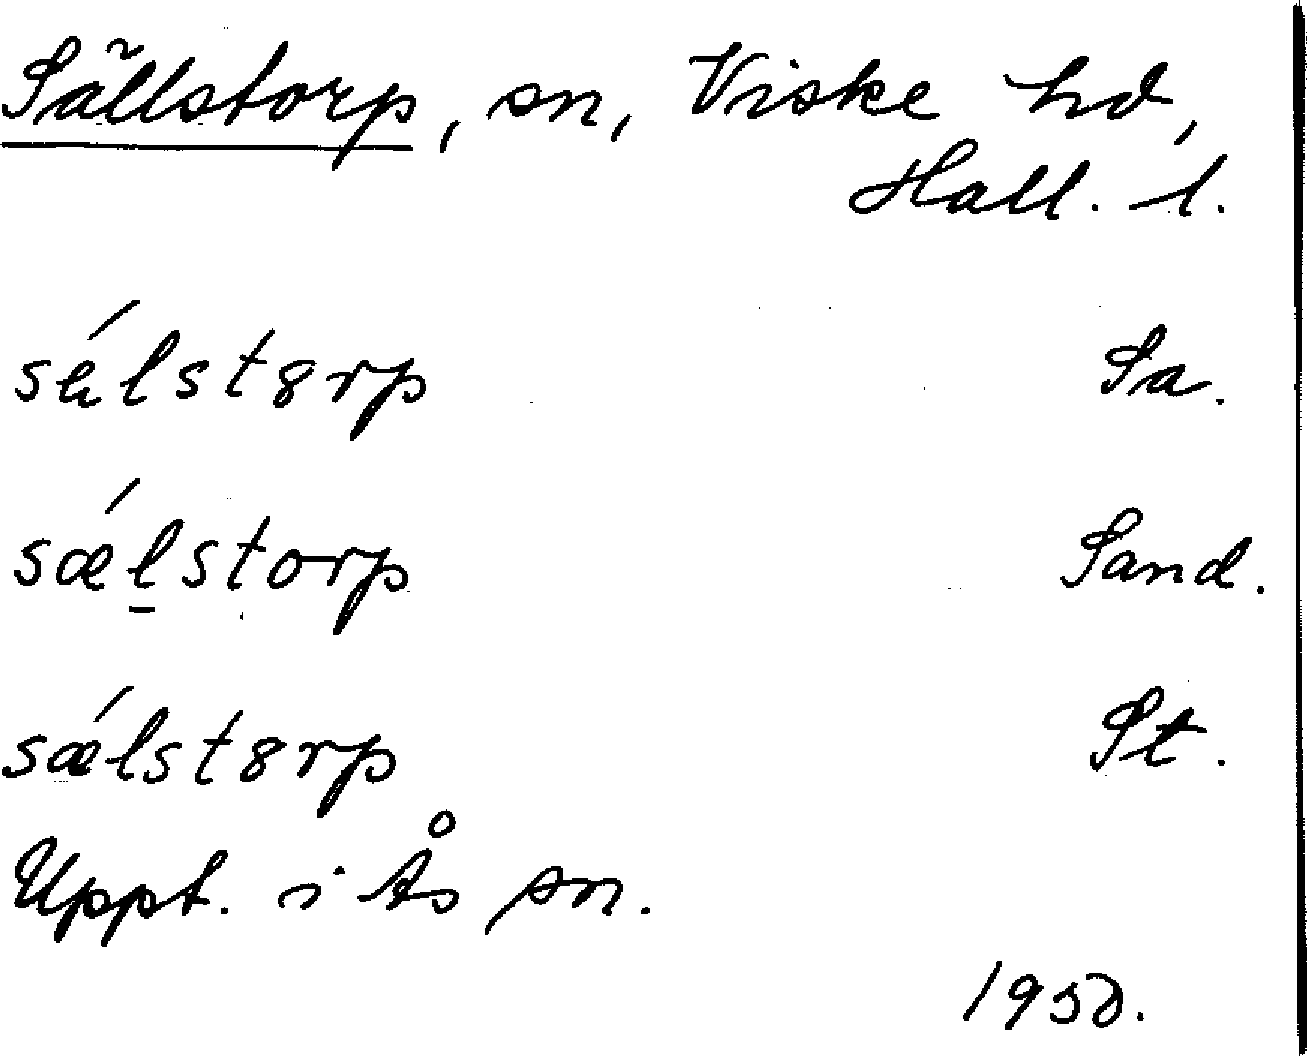 Sällstorp, sn, Viske hd,
Hall. l.
sä́lstȣrp Sa.
sǽl̠storp Sand.
sǽlstȣrp St.
Uppt. i Ås sn.
1950.